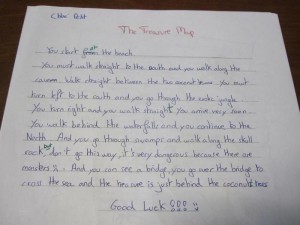 The Treasure Map
You start at the beach.
You must walk straight to the south and you walk along the
cavern. Walk straight between the two coconut trees. You must
turn left to the south and you go through the snake jungle.
You turn right and you walk straight. You arrive very soon.
You walk behind the waterfalls and you continue to the
North. And you go through swamps and walk along the skull
rock, but don't go this way, it's very dangerous because there are
monsters. And you can see a bridge, you go over the bridge to
cross the sea and the treasure is just behind the coconut trees
Good Luck !!!